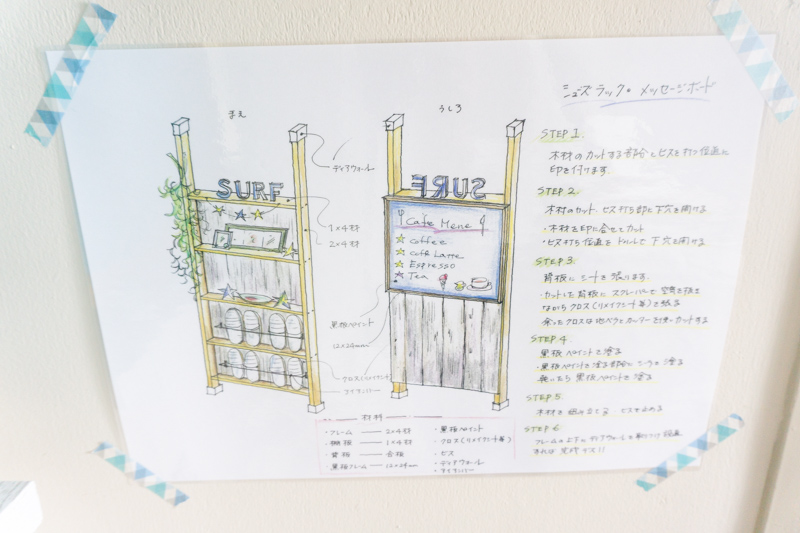 シューズラック。メッセージボード
まえ
うしろ
ディアウォール
SURF
SURF
1×4材
2×4材
Cafe Mene
coffee
cafe Latte
Espresso
Tea
黒板ペイント
12×24mm
クロス(リメイクシート
アイアンバー
STEP 1.
木材のカットする部分とビスを打つ位置に
印を付けます.
STEP 2.
木材のカット. ビス打ち部に下穴を開ける
・木材を印に合せてカット
・ビス打ち位置をドリルで下穴を開ける
STEP 3.
背板にシートを張ります.
・カットした背板にスクレーパーで空気を抜き
ながらクロス(リメイクシート等)を張る
余ったクロスは地ベラとカッターを使いカットする
STEP 4
黒板ペイントを塗る
・黒板ペイントを塗る部分に
乾いたら黒板ペイントを塗る
STEP 5.
木材を組み立て ビスを止める
STEP 6
フレームの上下にディアウォールを取りつけ 設置
すれば 完成デス!!
材料
・フレーム — 2×4材
・棚板 — 1×4材
・背板 — 合板
・黒板フレーム — 12×24mm
・黒板ペイント
・クロス(リメイクシート等)
・ビス
・ディアウォール
・アイアンバー